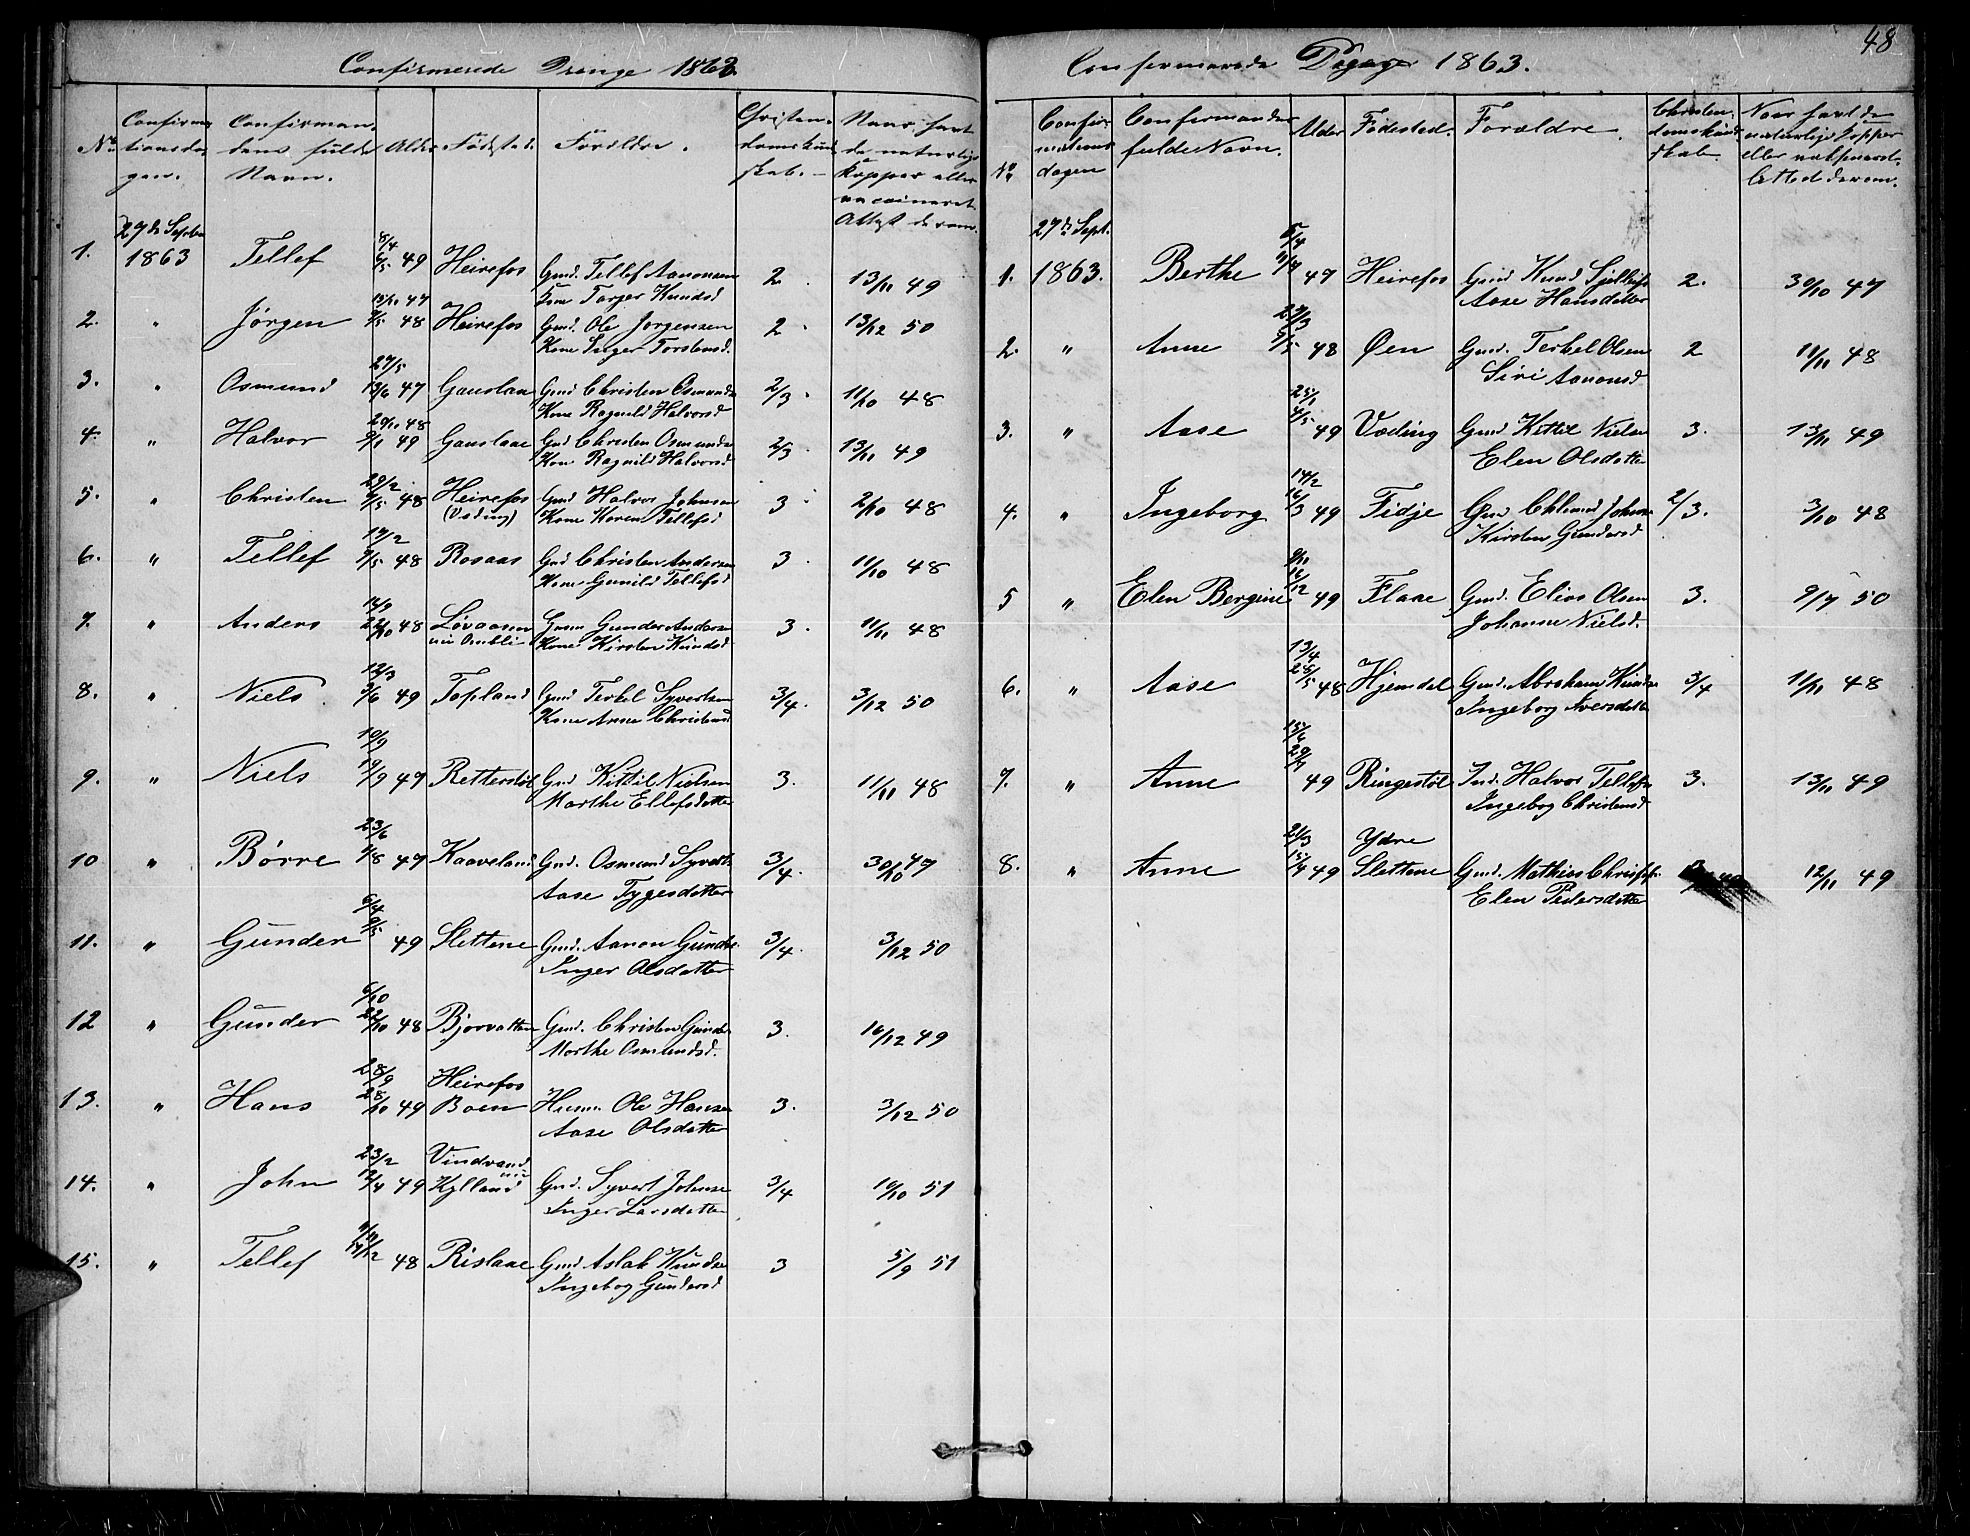 Confirmerede Drenge 1863.
No
Confirmationsdagen.
Confirmandens fulde Navn.
Alder
Fødested.
Forældre.
Christendomskundskab.
Naar havt de naturlige Kopper eller vaccineret. Attest derom.
1. 27de Septbr 1863 Tellef 8/4 6/5 49 Heirefos Gmd. Tellef Aanonsen 2. 13/11 49
Kone Torger Knudsd
2. " Jørgen 7/5 48 Heirefos Gmd. Ole Jørgensen 2 13/12 50
Kone Inger Torstensd.
3. " Osmund 27/5 13/6 47 Gauslaa Gmd Christen Osmunds 2/3 11/10 48
Kone Ragnild Halvorsd
4. " Halvor 9/1 49 Gauslaae Gmd Christen Osmunds 2/3 13/11 49
Kone Ragnild Halvorsd
5. " Christen 29/2 7/5 48 Heirefos Gmd Halvor Johnsen 3 2/10 48
(Væding) Kone Karen Tellefsd
6. " Tellef 17/2 7/5 48 Rosaas Gmd Christen Andersen 3 11/10 48
Kone Gunild Tellefsd
7. " Anders 14/9 22/10 48 Løvaasen Gunder Andersen 3. 11/11 48
Kone Kirsten Knudsd
8. " Niels 12/3 9/6 49 Topland Gmd Terkel Syvertsen 3/4. 3/12 50
Kone Anne Christensd
9. " Niels 10/9 19/9 47 Retterstøl Gmd Kittil Nielsen 3. 11/11 48
Marthe Ellefsdatter
10 " Børre 23/6 1/8 47 Kaaveland Gmd. Osmund Syverts. 3/4. 30/10 47
Aase Tygesdatter
11. " Gunder 6/4 9/5 49 Slettene Gmd. Aanon Gunders. 3/4. 3/12 50
Inger Olsdatter
12 " Gunder 6/10 22/10 48 Bjorvatten Gmd. Christen Gunders. 3. 16/12 49
Marthe Osmundsd.
13. " Hans 28/9 28/10 49 Heirefos Boen Husm. Ole Hansen 3. 3/12 50
Aase Olsdatter
14. " John 23/2 12/4 49 Vindvand Kylland Gmd. Syvert Johnsen 3/4 10/10 51
Inger Larsdatter
15. " Tellef 17/12 48 Rislaae Gmd Aslak Knudsen 3 5/9 51
Ingebog Gundersd
48
Confermerede Piger 1863.
No
Confirmationsdagen
Confermandens fulde Navn.
Alder
Fødested.
Forældre.
Christendomskundskab
Naar havt de naturlige Kopper
1. 27de Sept. 1863. Berthe 5/4 47 Heirefos Gmd Knud Sjellefs 2. 30/10 47
Aase Hansdatter
2. " Anne 29/3 7/5 48 Øen Gmd. Terkel Olsen 2 11/11 48
Siri Aanonsd
3. " Aase 25/1 4/5 49 Væding Gmd Kittil Nielsen 3. 13/11 49
Elen Olsdatter
4. " Ingeborg 14/2 16/3 49 Fidje Gmd Johns. 2/3. 3/10 48
Kirsten Gundersd
5 " Elen Bergine 16/12 49 Flaae Gmd. Elias Olsen 3. 9/7 50
Johanne Nielsd.
6. " Aase 13/4 25/5 48 Hjemdal Gmd. Abraham Knuds. 3/4 11/11 48
Ingeborg Iversdatter
7. " Anne 15/6 49 Ringestøl Ind. Halvor Tellefs. 3. 13/11 49
Ingebog Christensd
8. " Anne 21/3 15/4 49 Ydre Slettene Gmd. Mathias Christophs. 12/11 49
Elen Pedersdatter